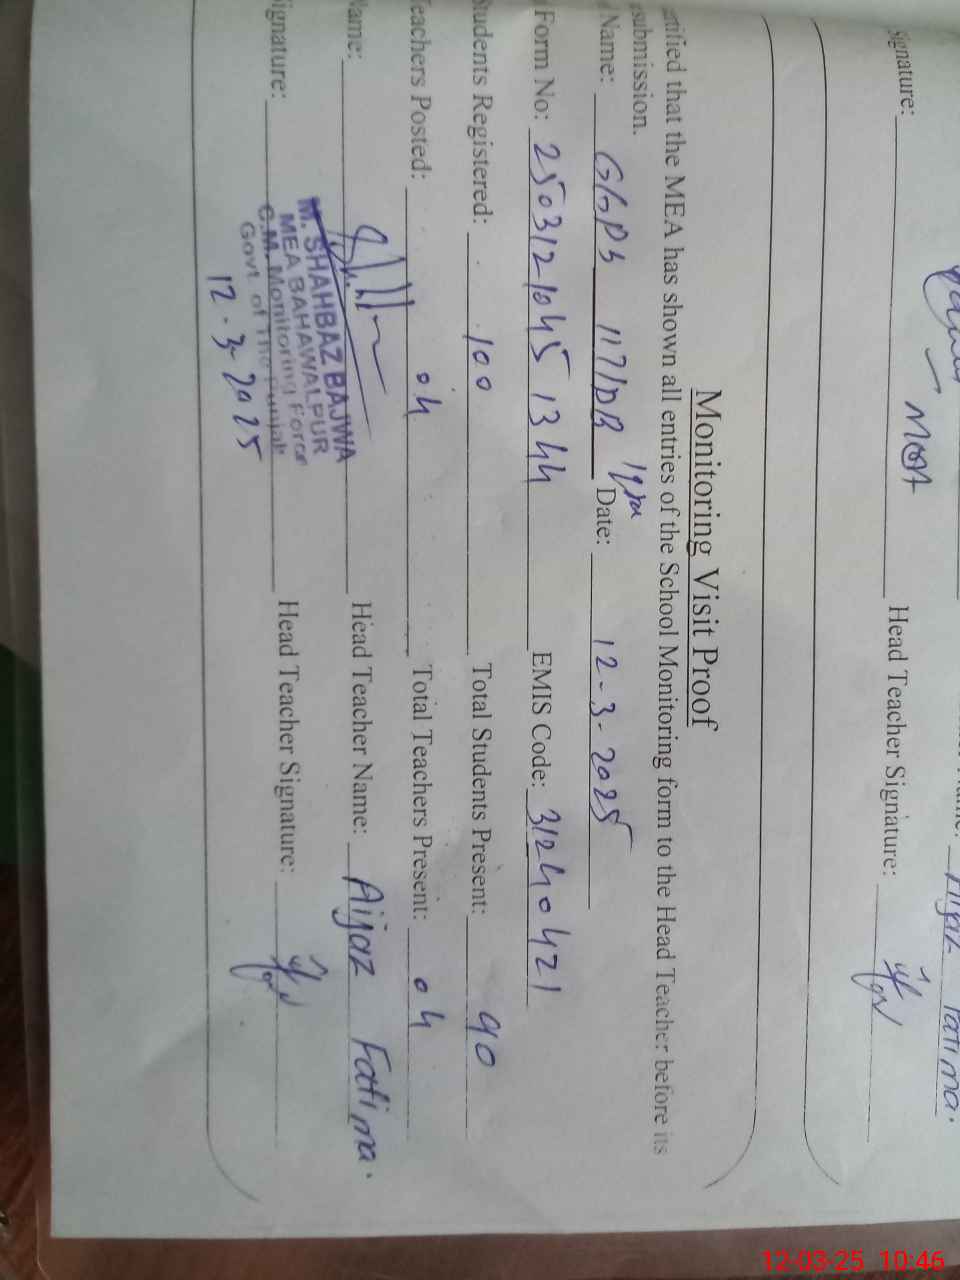 Signature: MEA Head Teacher Signature:
Fatima.
Monitoring Visit Proof
tified that the MEA has shown all entries of the School Monitoring form to the Head Teacher before its
submission.
Name: GGPS 117/DB Date: 12-3-2025
Form No: 25031210451344 EMIS Code: 31240421
Students Registered: 100 Total Students Present: 90
Teachers Posted: 04 Total Teachers Present: 04
Name: Head Teacher Name: Aijaz Fatima.
Signature: Head Teacher Signature:
M. SHAHBAZ BAJWA
MEA BAHAWALPUR
C.M. Monitoring Force
Govt. of The Punjab
12-3-2025
12-03-25 10:46